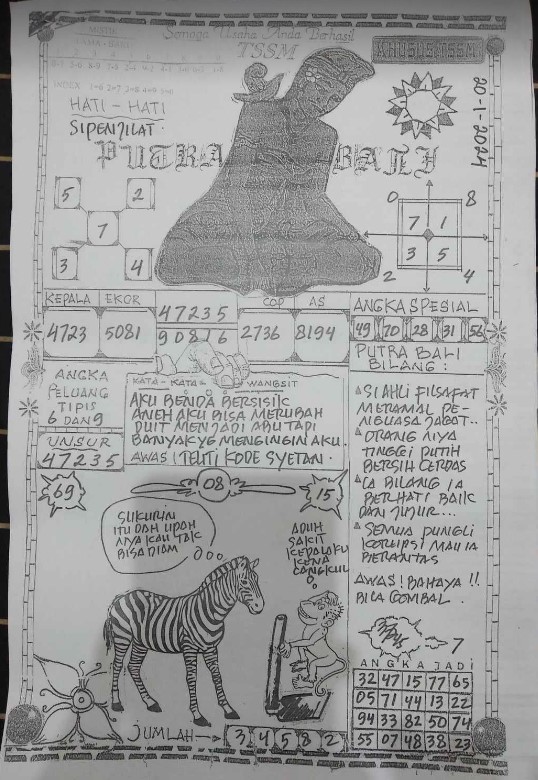 Semoga Usaha Anda Berhasil
TSSM
KHUSUS TSSM
20-1-2024
HATI - HATI
SIPENJILAT.
PUTRA BALI
5 2
7
3 4
0 8
7 1
3 5
2 4
KEPALA EKOR
4723 5081
47235
90816
COP AS
2736 8194
ANGKA SPESIAL
49 70 28 31 56
ANGKA
PELUANG
TIPIS
6 DAN 9
UNSUR
47235
KATA - KATA = WANGSIT
AKU BENDA BERSISIK
ANEH AKU BISA MERUBAH
DUIT MENJADI ABU TAPI
BANYAK YG MENGINGIN AKU.
AWAS! TELITI KODE SYETAN.
PUTRA BALI
BILANG :
SI AHLI FILSAFAT
MERAMAL PE-
NGUASA JAGAT..
ORANG NYA
TINGGI PUTIH
BERSIH CERDAS
IA BILANG IA
BERHATI BAIK
DAN JUJUR...
SEMUA PUNGLI
KORUPSI MAU IA
BERANTAS
AWAS! BAHAYA !!
BILA GOMBAL.
69
08
15
SUKURIN
ITU DAH UPAH
NYA KAU TAK
BISA DIAM
ADUH
SAKIT
KEPALAKU
KENA
CANGKUL
7
ANGKA JADI
32 47 15 77 65
05 71 44 13 22
94 33 82 50 74
55 07 48 38 23
JUMLAH → 3 4 5 8 2